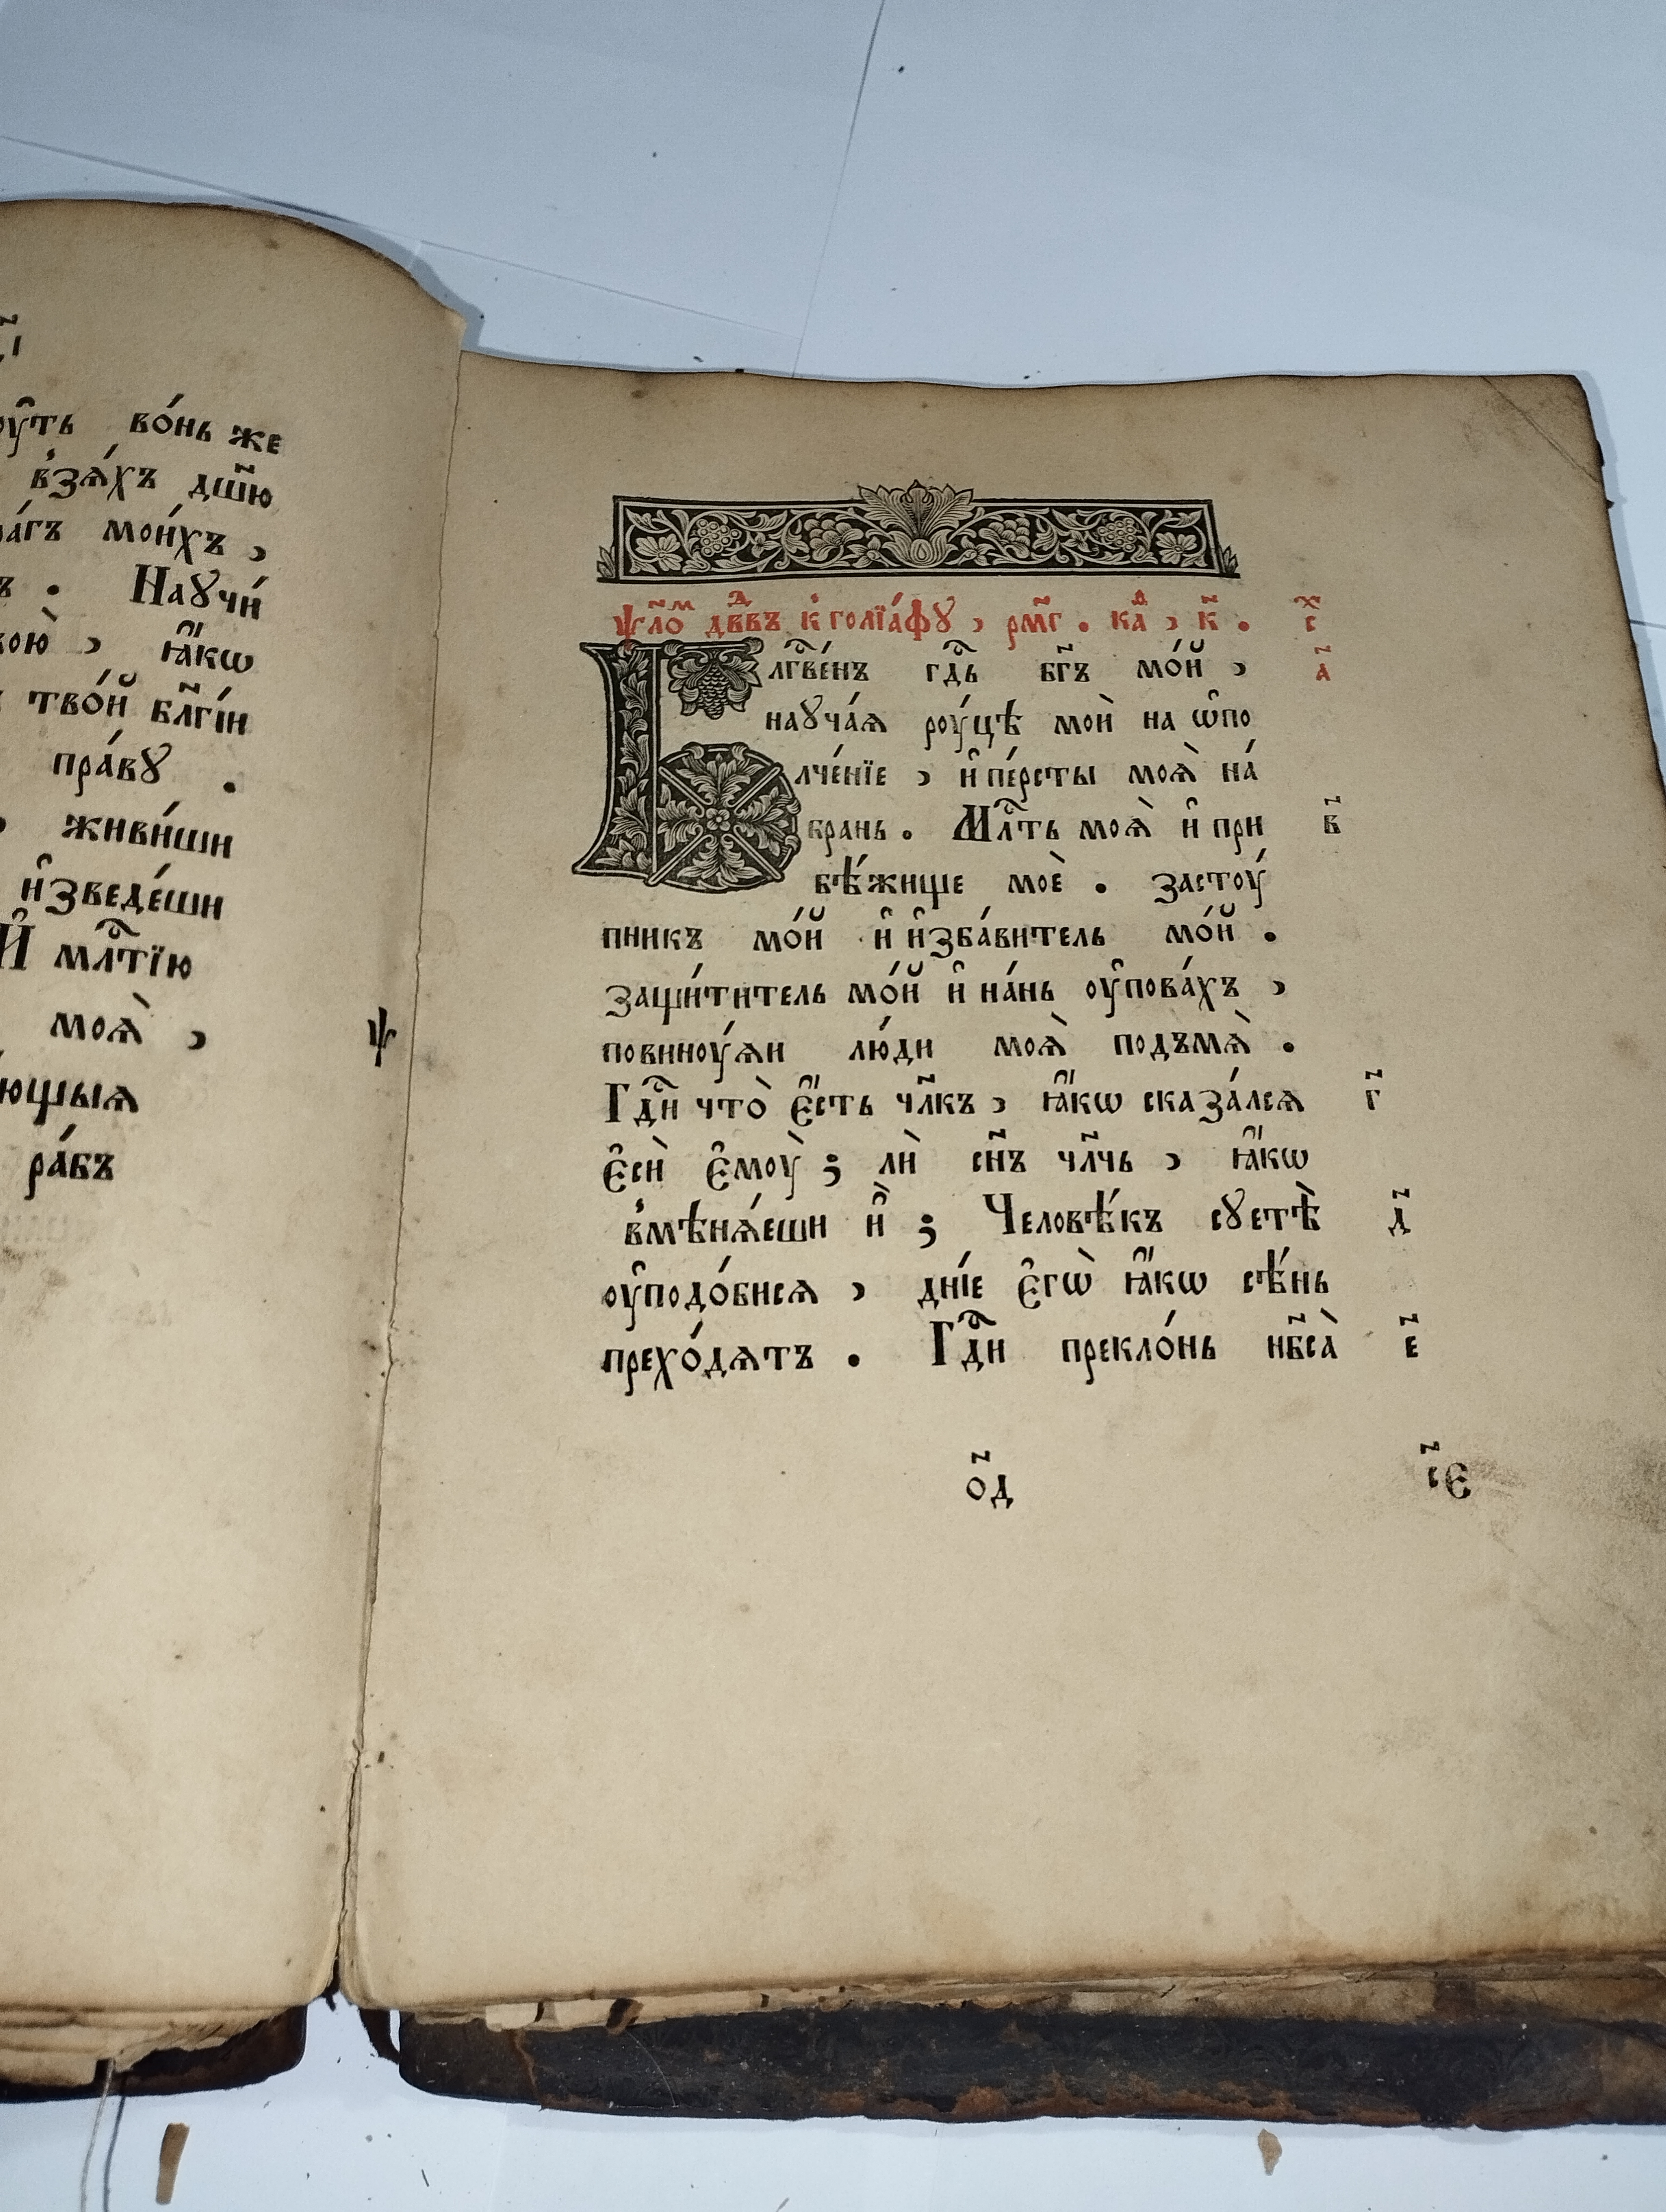 оу҆́ть во́нь же
в҆зѧ́хъ дш҃ю
ра́гъ мои́хъ ,
ъ . Наꙋчи́
кою̀ , ꙗ҆́кѡ
тво́й бл҃гі́и
пра́вꙋ .
живи́ши
и҆зведе́ши
И҆ млⷭ҇тїю
моѧ̀ , ѱ
ющыѧ
ра́бъ
ѱл҃оⷨ дв҃дⷣъ к҆ голїа́фꙋ , рм҃г . каⷴ , к҃ . сⷯ
Блгⷭ҇ве́нъ гдⷭ҇ь бг҃ъ мо́й , а҃
наꙋча́ѧ рꙋ́цѣ моѝ на ѡ҆по
лче́нїе , и҆ пе́рсты моѧ̀ на́
брань . Млⷭ҇ть моѧ̀ и҆ при в҃
бѣ́жище моѐ . застоу́
пникъ мо́й и҆ и҆зба́витель мо́й .
защи́титель мо́й и҆ на́нь оу҆пова́хъ ,
повиноу́ѧи лю́ди моѧ̀ подъмѧ̀ .
Гдⷭ҇и что̀ є҆́сть чл҃къ , ꙗ҆́кѡ сказа́лсѧ г҃
є҆сѝ є҆моу̀ ; лѝ сн҃ъ чл҃чь , ꙗ҆́кѡ
в҆мѣнѧ́еши и҆̀ ; Человѣ́къ сꙋетѣ̀ д҃
оу҆подо́бисѧ , дні́е є҆гѡ̀ ꙗ҆́кѡ сѣ́нь
прехо́дѧтъ . Гдⷭ҇и прекло́нь нб҃са̀ є҃
о҃д с҃є